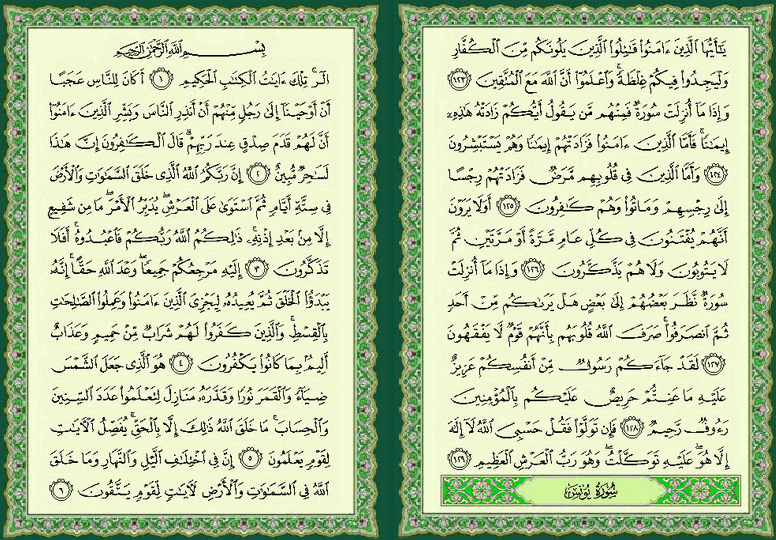 يَٰٓأَيُّهَا ٱلَّذِينَ ءَامَنُوا۟ قَٰتِلُوا۟ ٱلَّذِينَ يَلُونَكُم مِّنَ ٱلْكُفَّارِ
وَلْيَجِدُوا۟ فِيكُمْ غِلْظَةً ۚ وَٱعْلَمُوٓا۟ أَنَّ ٱللَّهَ مَعَ ٱلْمُتَّقِينَ ١٢٣
وَإِذَا مَآ أُنزِلَتْ سُورَةٌ فَمِنْهُم مَّن يَقُولُ أَيُّكُمْ زَادَتْهُ هَٰذِهِۦٓ
إِيمَٰنًا ۚ فَأَمَّا ٱلَّذِينَ ءَامَنُوا۟ فَزَادَتْهُمْ إِيمَٰنًا وَهُمْ يَسْتَبْشِرُونَ
١٢٤ وَأَمَّا ٱلَّذِينَ فِى قُلُوبِهِم مَّرَضٌ فَزَادَتْهُمْ رِجْسًا
إِلَىٰ رِجْسِهِمْ وَمَاتُوا۟ وَهُمْ كَٰفِرُونَ ١٢٥ أَوَلَا يَرَوْنَ
أَنَّهُمْ يُفْتَنُونَ فِى كُلِّ عَامٍ مَّرَّةً أَوْ مَرَّتَيْنِ ثُمَّ
لَا يَتُوبُونَ وَلَا هُمْ يَذَّكَّرُونَ ١٢٦ وَإِذَا مَآ أُنزِلَتْ
سُورَةٌ نَّظَرَ بَعْضُهُمْ إِلَىٰ بَعْضٍ هَلْ يَرَىٰكُم مِّنْ أَحَدٍ
ثُمَّ ٱنصَرَفُوا۟ ۚ صَرَفَ ٱللَّهُ قُلُوبَهُم بِأَنَّهُمْ قَوْمٌ لَّا يَفْقَهُونَ
١٢٧ لَقَدْ جَآءَكُمْ رَسُولٌ مِّنْ أَنفُسِكُمْ عَزِيزٌ
عَلَيْهِ مَا عَنِتُّمْ حَرِيصٌ عَلَيْكُم بِٱلْمُؤْمِنِينَ
رَءُوفٌ رَّحِيمٌ ١٢٨ فَإِن تَوَلَّوْا۟ فَقُلْ حَسْبِىَ ٱللَّهُ لَآ إِلَٰهَ
إِلَّا هُوَ ۖ عَلَيْهِ تَوَكَّلْتُ ۖ وَهُوَ رَبُّ ٱلْعَرْشِ ٱلْعَظِيمِ ١٢٩
سُورَةُ يُونُسَ
بِسْمِ ٱللَّهِ ٱلرَّحْمَٰنِ ٱلرَّحِيمِ
الٓر ۚ تِلْكَ ءَايَٰتُ ٱلْكِتَٰبِ ٱلْحَكِيمِ ١ أَكَانَ لِلنَّاسِ عَجَبًا
أَنْ أَوْحَيْنَآ إِلَىٰ رَجُلٍ مِّنْهُمْ أَنْ أَنذِرِ ٱلنَّاسَ وَبَشِّرِ ٱلَّذِينَ ءَامَنُوٓا۟
أَنَّ لَهُمْ قَدَمَ صِدْقٍ عِندَ رَبِّهِمْ ۗ قَالَ ٱلْكَٰفِرُونَ إِنَّ هَٰذَا
لَسَٰحِرٌ مُّبِينٌ ٢ إِنَّ رَبَّكُمُ ٱللَّهُ ٱلَّذِى خَلَقَ ٱلسَّمَٰوَٰتِ وَٱلْأَرْضَ
فِى سِتَّةِ أَيَّامٍ ثُمَّ ٱسْتَوَىٰ عَلَى ٱلْعَرْشِ ۖ يُدَبِّرُ ٱلْأَمْرَ ۖ مَا مِن شَفِيعٍ
إِلَّا مِنۢ بَعْدِ إِذْنِهِۦ ۚ ذَٰلِكُمُ ٱللَّهُ رَبُّكُمْ فَٱعْبُدُوهُ ۚ أَفَلَا
تَذَكَّرُونَ ٣ إِلَيْهِ مَرْجِعُكُمْ جَمِيعًا ۖ وَعْدَ ٱللَّهِ حَقًّا ۚ إِنَّهُۥ
يَبْدَؤُا۟ ٱلْخَلْقَ ثُمَّ يُعِيدُهُۥ لِيَجْزِىَ ٱلَّذِينَ ءَامَنُوا۟ وَعَمِلُوا۟ ٱلصَّٰلِحَٰتِ
بِٱلْقِسْطِ ۚ وَٱلَّذِينَ كَفَرُوا۟ لَهُمْ شَرَابٌ مِّنْ حَمِيمٍ وَعَذَابٌ
أَلِيمٌۢ بِمَا كَانُوا۟ يَكْفُرُونَ ٤ هُوَ ٱلَّذِى جَعَلَ ٱلشَّمْسَ
ضِيَآءً وَٱلْقَمَرَ نُورًا وَقَدَّرَهُۥ مَنَازِلَ لِتَعْلَمُوا۟ عَدَدَ ٱلسِّنِينَ
وَٱلْحِسَابَ ۚ مَا خَلَقَ ٱللَّهُ ذَٰلِكَ إِلَّا بِٱلْحَقِّ ۚ يُفَصِّلُ ٱلْءَايَٰتِ
لِقَوْمٍ يَعْلَمُونَ ٥ إِنَّ فِى ٱخْتِلَٰفِ ٱلَّيْلِ وَٱلنَّهَارِ وَمَا خَلَقَ
ٱللَّهُ فِى ٱلسَّمَٰوَٰتِ وَٱلْأَرْضِ لَءَايَٰتٍ لِّقَوْمٍ يَتَّقُونَ ٦